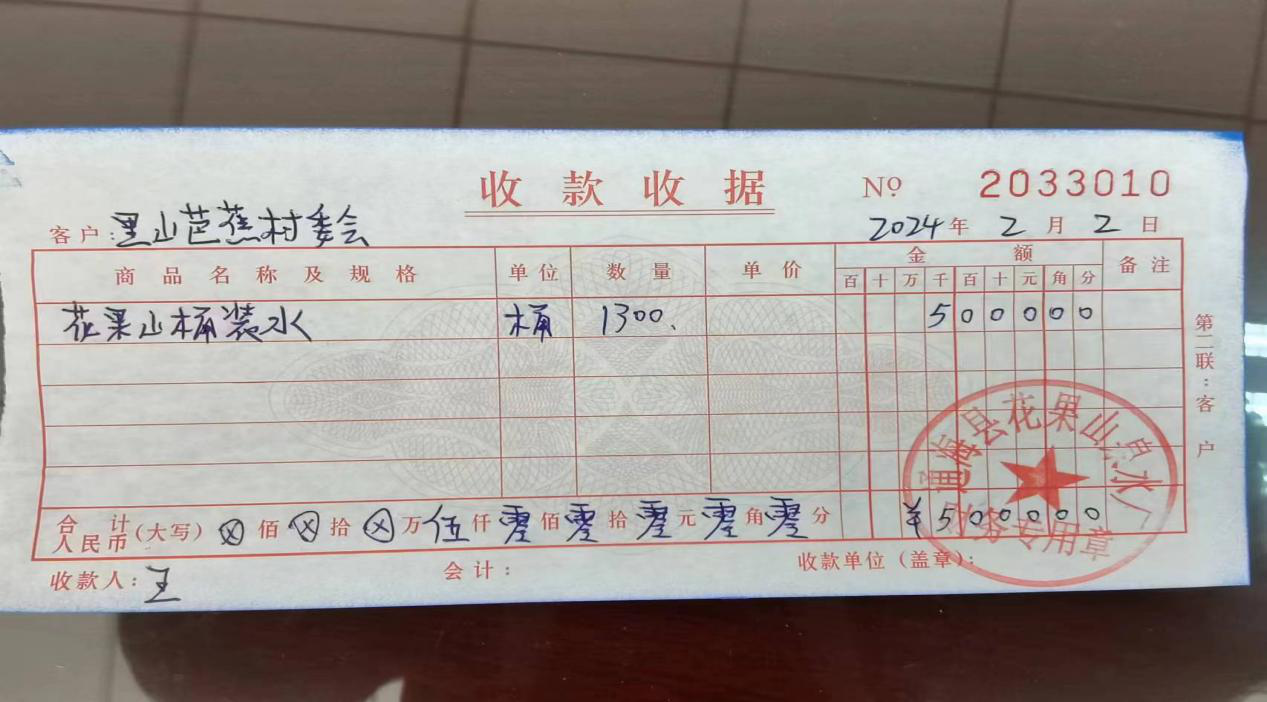 收款收据
№ 2033010
客户:里山芭蕉村委会
2024年2月2日
商品名称及规格 单位 数量 单价 金额 备注
百 十 万 千 百 十 元 角 分
花果山桶装水 桶 1300. 5 0 0 0 0 0
第二联:客户
合计人民币(大写) ⊗佰⊗拾⊗万伍仟零佰零拾零元零角零分 ¥500000
收款人:王 会计: 收款单位(盖章):
通海县花果山泉水厂
财务专用章